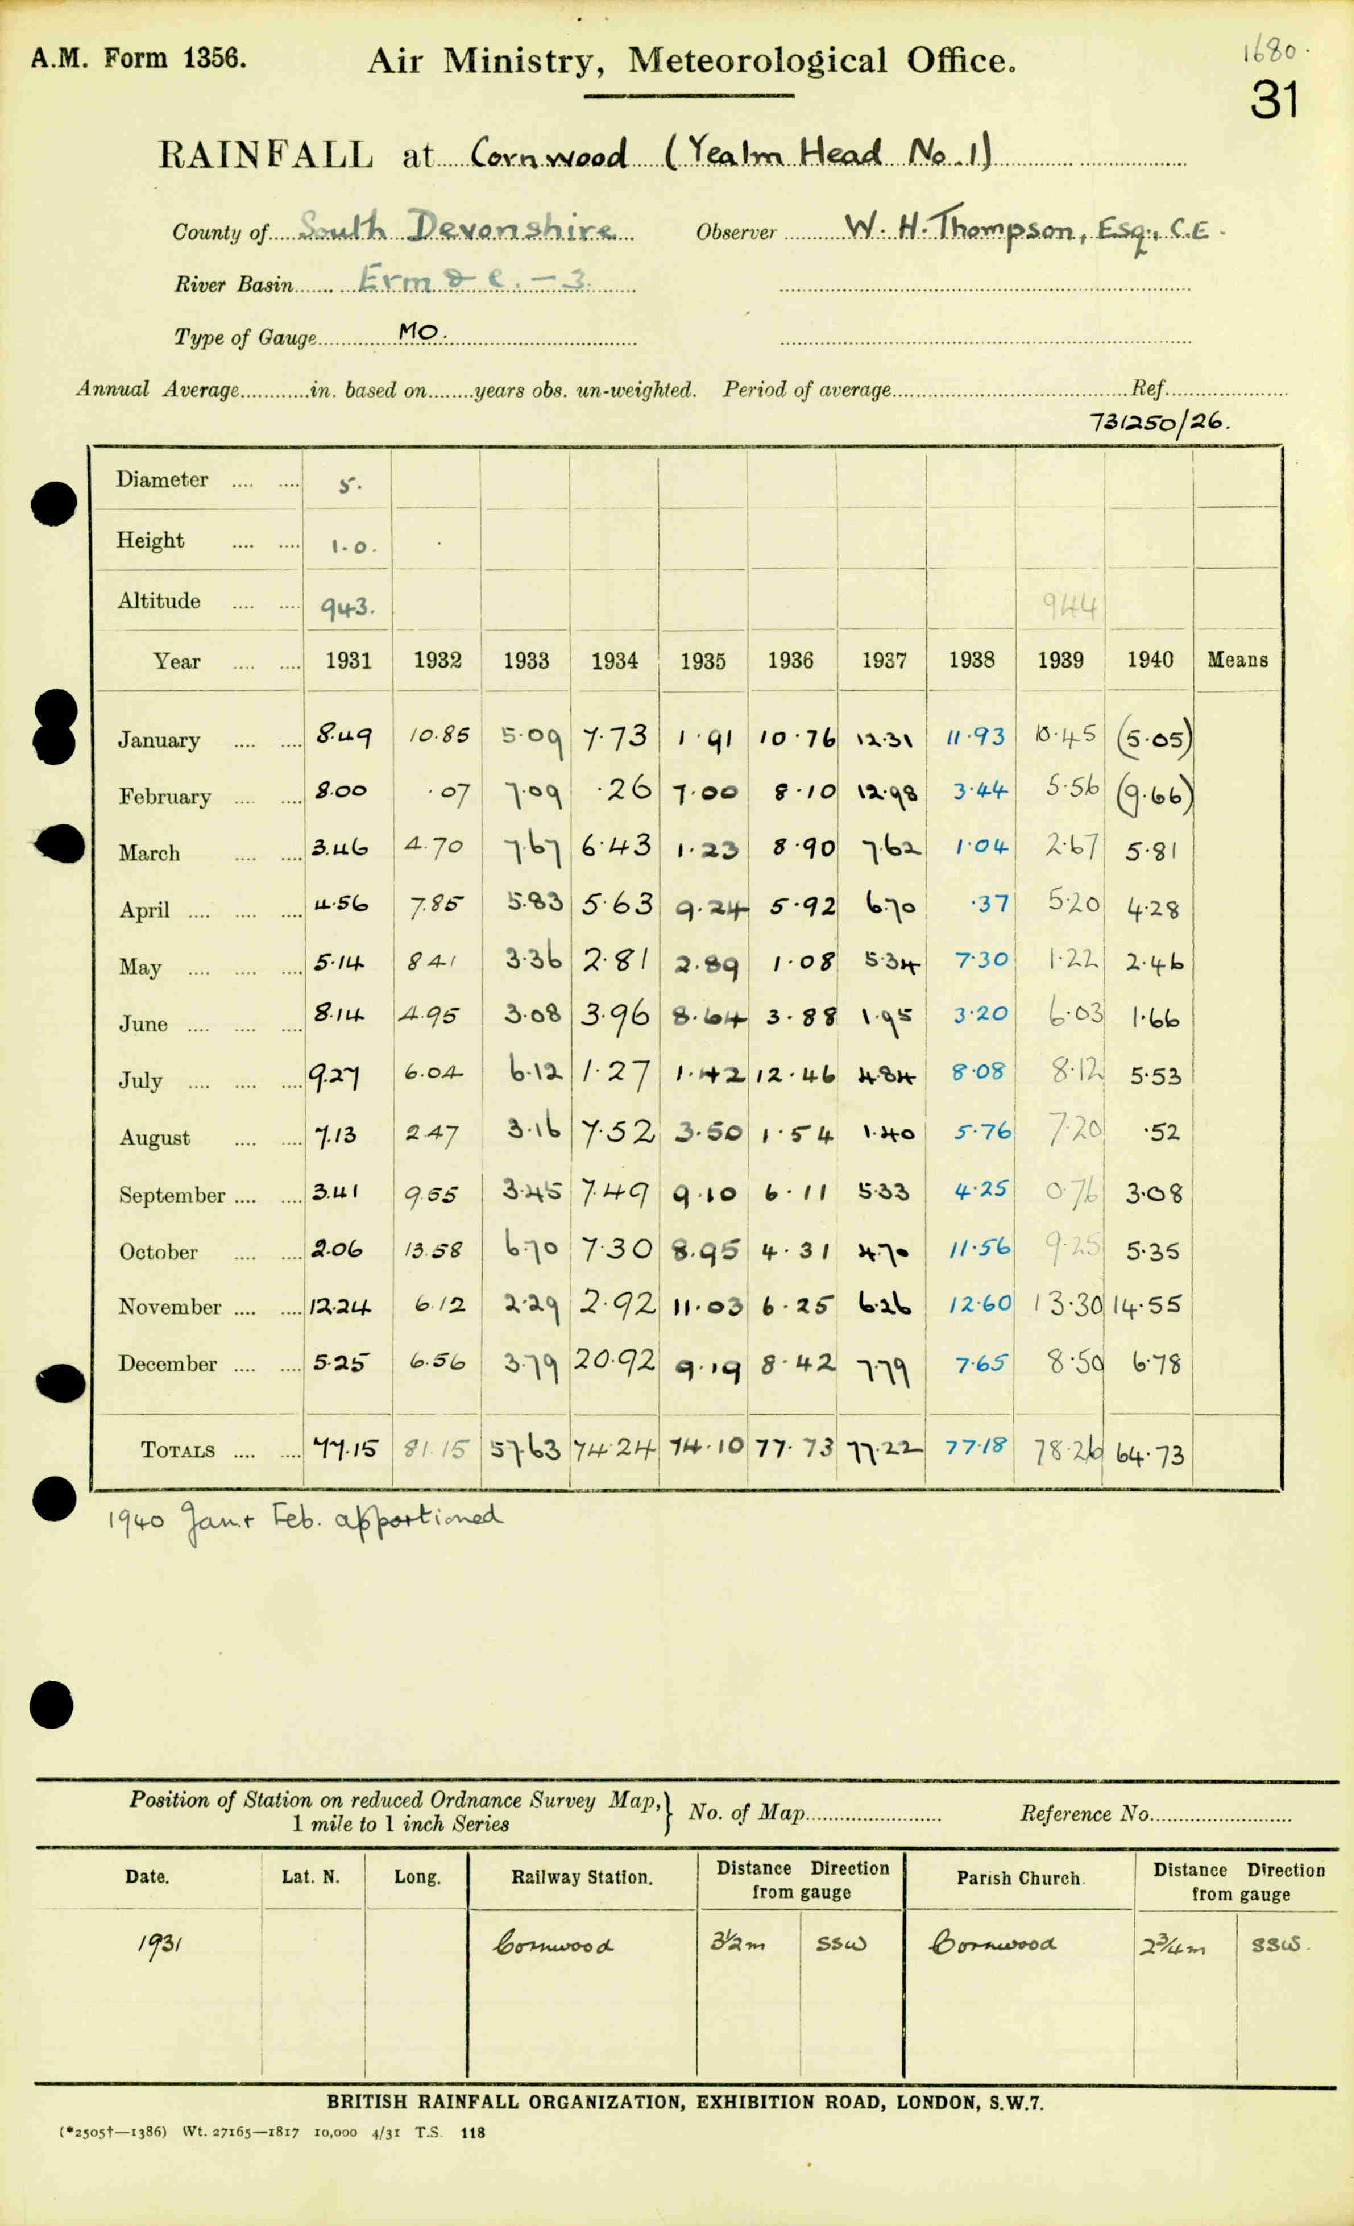 A.M. Form 1356. Air Ministry, Meteorological Office. 1680.
31
RAINFALL at Cornwood (Yealm Head No.1)
County of South Devonshire Observer W. H. Thompson, Esq., C.E.
River Basin Erm &c. - 3.
Type of Gauge MO.
Annual Average in. based on years obs. un-weighted. Period of average Ref.
731250/26.
Diameter 5.
Height 1.0.
Altitude 943. 944
Year 1931 1932 1933 1934 1935 1936 1937 1938 1939 1940 Means
January 8.49 10.85 5.09 7.73 1.91 10.76 12.31 11.93 10.45 (5.05)
February 8.00 .07 7.09 .26 7.00 8.10 12.98 3.44 5.56 (9.66)
March 3.46 4.70 7.67 6.43 1.23 8.90 7.62 1.04 2.67 5.81
April 4.56 7.85 5.83 5.63 9.24 5.92 6.70 .37 5.20 4.28
May 5.14 8.41 3.36 2.81 2.89 1.08 5.34 7.30 1.22 2.46
June 8.14 4.95 3.08 3.96 8.64 3.88 1.95 3.20 6.03 1.66
July 9.27 6.04 6.12 1.27 1.42 12.46 4.84 8.08 8.12 5.53
August 7.13 2.47 3.16 7.52 3.50 1.54 1.40 5.76 7.20 .52
September 3.41 9.55 3.45 7.49 9.10 6.11 5.33 4.25 0.76 3.08
October 2.06 13.58 6.70 7.30 8.95 4.31 4.70 11.56 9.25 5.35
November 12.24 6.12 2.29 2.92 11.03 6.25 6.26 12.60 13.30 14.55
December 5.25 6.56 3.79 20.92 9.19 8.42 7.79 7.65 8.50 6.78
TOTALS 77.15 81.15 57.63 74.24 74.10 77.73 77.22 77.18 78.26 64.73
1940 Jan + Feb. apportioned
Position of Station on reduced Ordnance Survey Map,} No. of Map Reference No.
1 mile to 1 inch Series
Date. Lat. N. Long. Railway Station. Distance Direction from gauge Parish Church. Distance Direction from gauge
1931 Cornwood 3½m SSW Cornwood 2¾m SSW.
BRITISH RAINFALL ORGANIZATION, EXHIBITION ROAD, LONDON, S.W.7.
(*2505†—1386) Wt. 27165—1817 10,000 4/31 T.S. 118